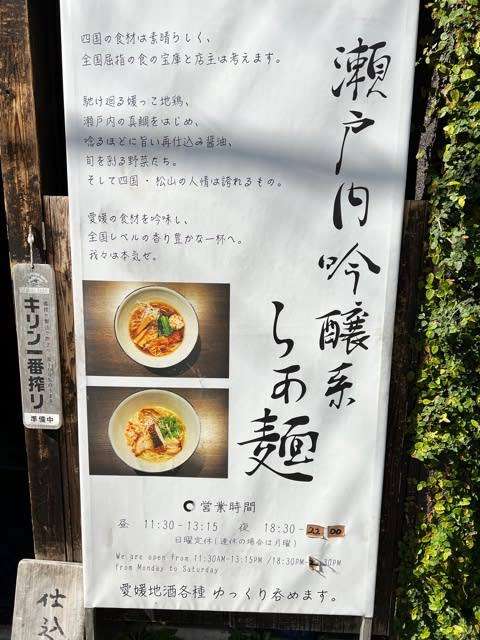 四国の食材は素晴らしく、
全国屈指の食の宝庫と店主は考えます。
馳け巡る媛っこ地鶏、
瀬戸内の真鯛をはじめ、
唸るほどに旨い再仕込み醤油、
旬を彩る野菜たち。
そして四国・松山の人情は誇れるもの。
愛媛の食材を吟味し、
全国レベルの香り豊かな一杯へ。
我々は本気ぜ。
瀬戸内吟醸系
らあ麺
営業時間
昼 11:30-13:15 夜 18:30-22:00
日曜定休(連休の場合は月曜)
We are open from 11:30AM-13:15PM /18:30PM- :30PM
from Monday to Saturday
愛媛地酒各種 ゆっくり呑めます。
キリン一番搾り
準備中
仕込